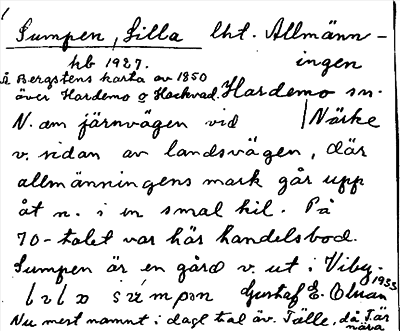 Sumpen, Lilla lht. Allmänn-
hb 1927. ingen
Å Bergstens karta av 1850
över Hardemo o Hackvad. Hardemo sn.
N. om järnvägen vid Närke
v. sidan av landsvägen, där
allmänningens mark går upp
åt n. i en smal kil. På
70-talet var här handelsbod.
Sumpen är en gård v. ut i Viby.
Gustaf E. Olsson 1935
Nu mest namnt i dagl tal äv. Tälle, då T. är
nära